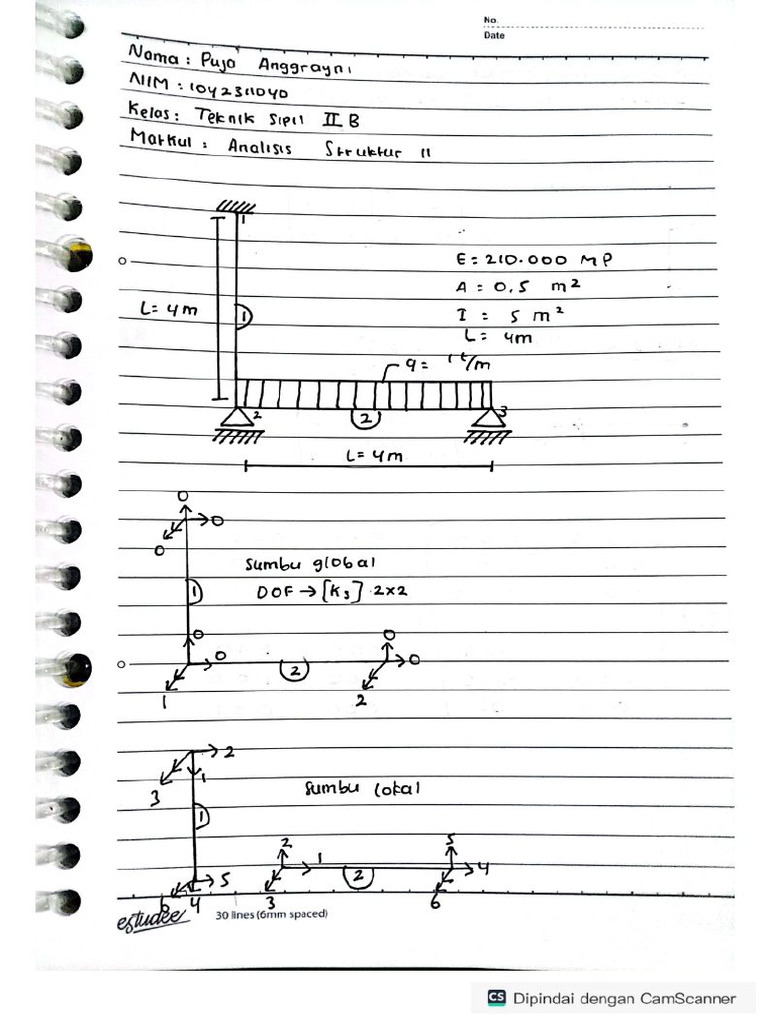 No.
Date
Nama : Puja Anggrayni
NIM : 1042311040
Kelas : Teknik Sipil II B
Matkul : Analisis Struktur II
1
E = 210.000 MP
A = 0,5 m²
L = 4m
1
I = 5 m²
L = 4m
q = 1 t/m
2
2
3
L = 4m
0
0
0
Sumbu global
1
DOF → [Ks] 2x2
0
0
0
0
2
1
2
2
1
3
Sumbu lokal
1
2
5
1
2
4
5
6
4
3
6
estudee
30 lines (6mm spaced)
CS Dipindai dengan CamScanner